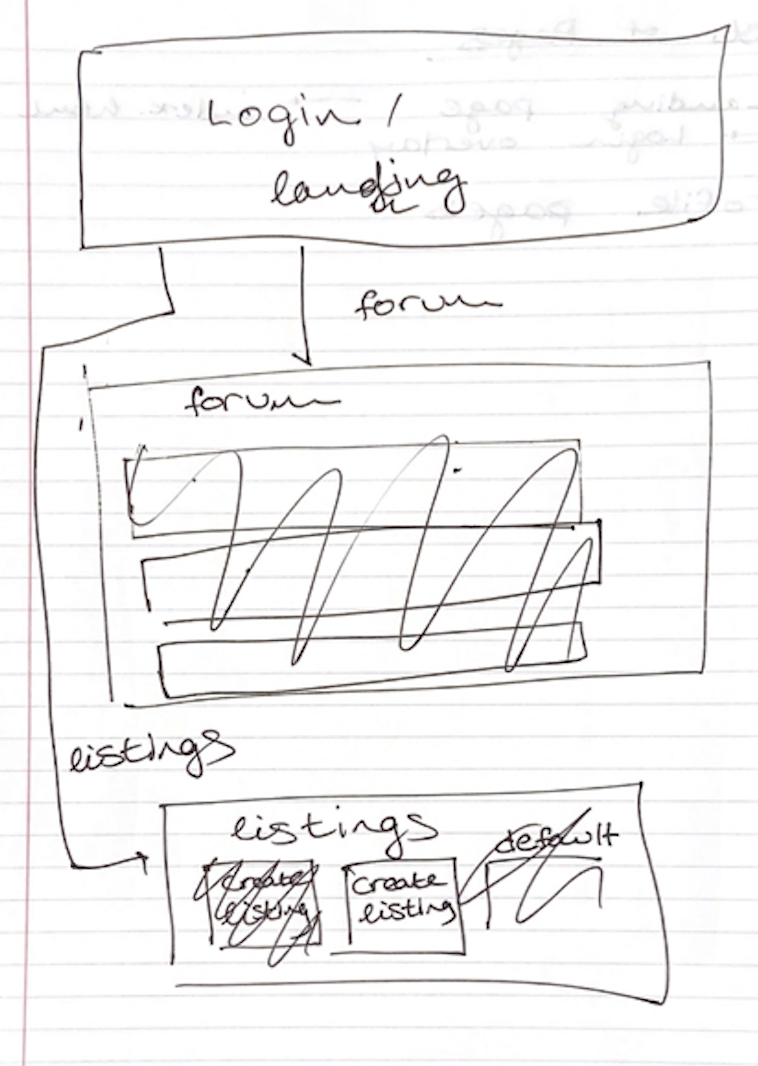 Login /
landing
forum
forum
listings
listings
default
create
listing
create
listing